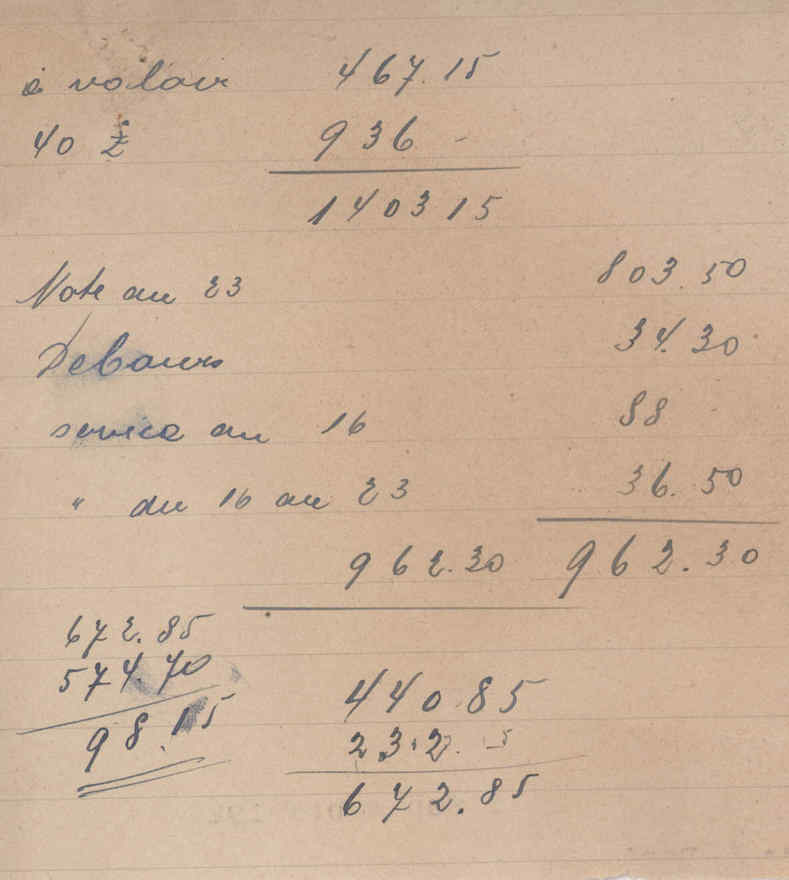 à valoir 467.15
40 £ 936 -
1403 15
Note au 23 803.50
Debours 34.30
service au 16 88
" du 16 au 23 36.50
962.30 962.30
672.85
574.70
98.15
440.85
232. -
672.85